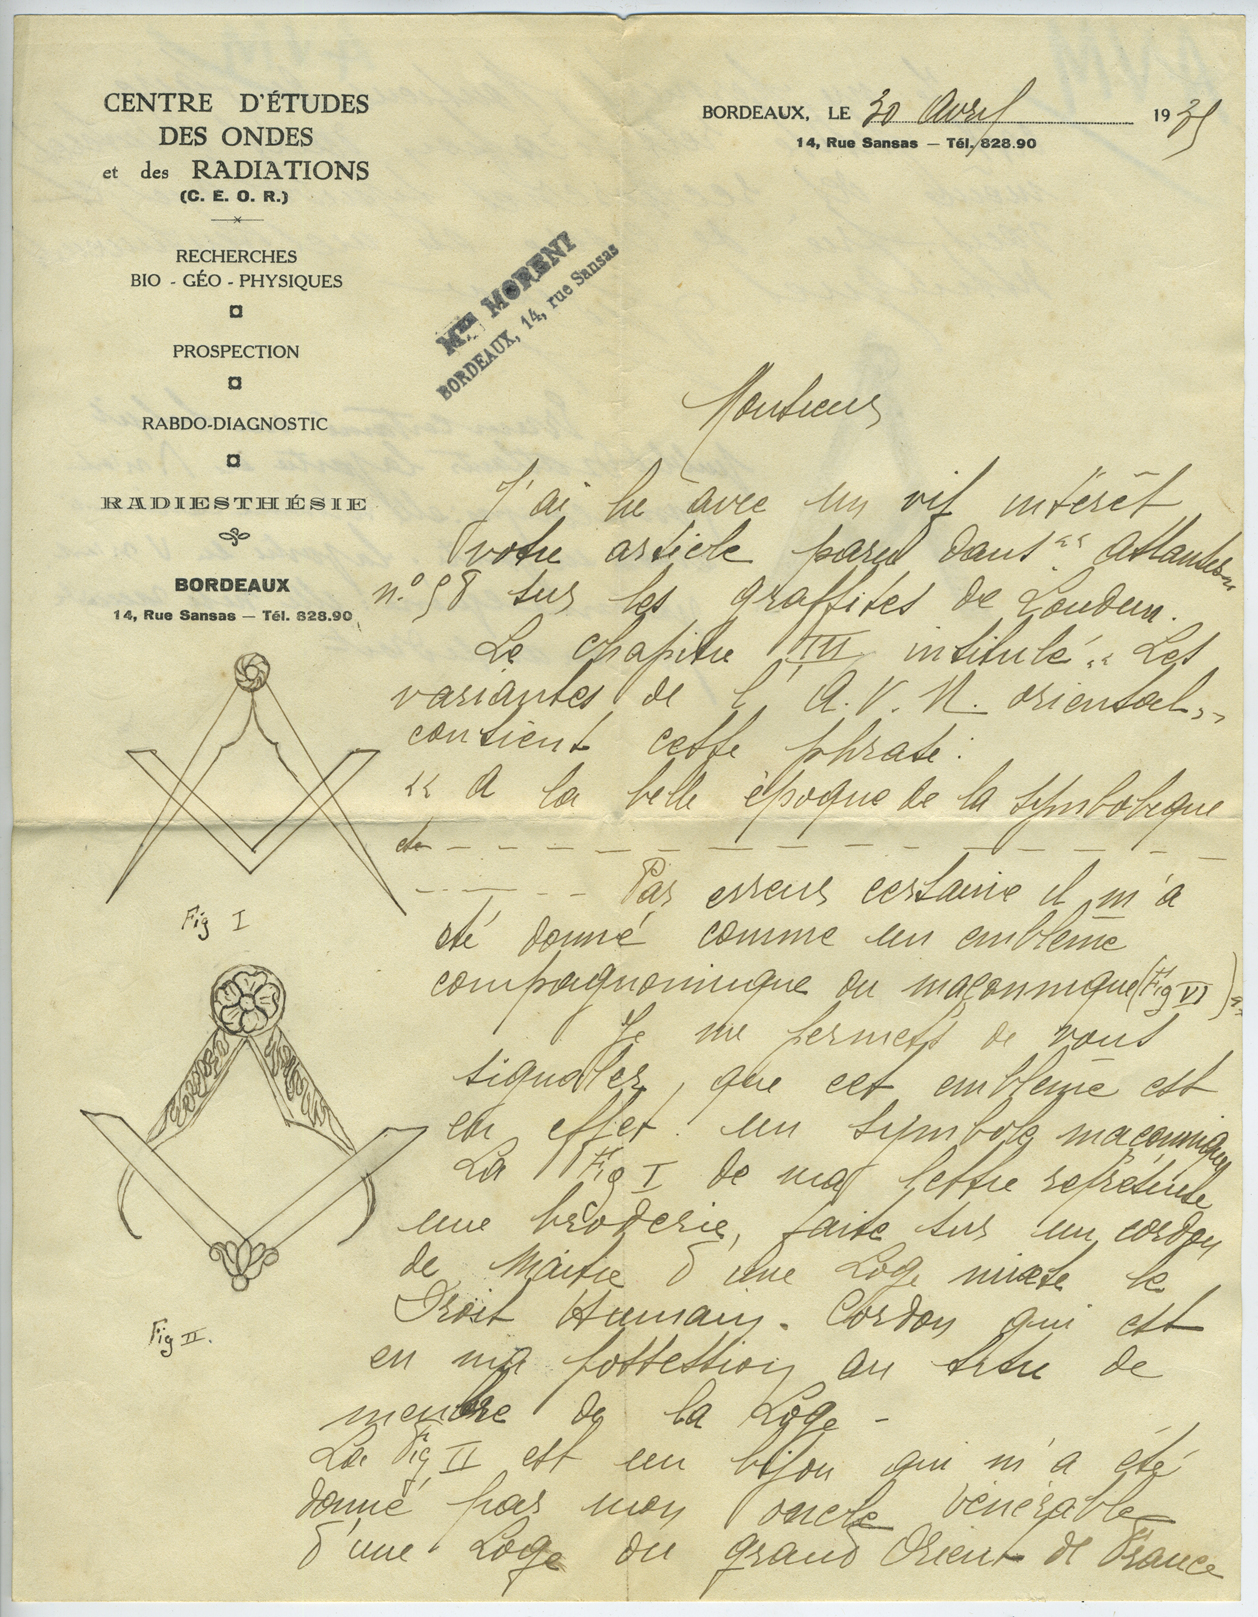 CENTRE D'ÉTUDES
DES ONDES
et des RADIATIONS
(C. E. O. R.)
RECHERCHES
BIO - GÉO - PHYSIQUES
PROSPECTION
RABDO-DIAGNOSTIC
RADIESTHÉSIE
BORDEAUX
14, Rue Sansas — Tél. 828.90
BORDEAUX, LE 30 Avril 19
14, Rue Sansas — Tél. 828.90
MORENI
BORDEAUX, 14, rue Sansas
Monsieur
J'ai lu avec un vif intérêt
votre article paru dans "Atlantis"
n° 58 sur les graffites de Loudun.
Le chapitre III intitulé "Les
variantes de l'A.V.M. oriental"
contient cette phrase :
"A la belle époque de la symbolique
etc — — — — — — — — — — — —
— — — — — Par erreur certaine il m'a
été donné comme un emblème
compagnonnique ou maçonnique (Fig VI)"
Je me permets de vous
signaler, que cet emblème est
en effet un symbole maçonnique
La Fig I de ma lettre représente
une broderie, faite sur un cordon
de Maître d'une Loge mixte le
Droit Humain. Cordon qui est
en ma possession au titre de
membre de la Loge -
La Fig II est un bijou qui m'a été
donné par mon oncle vénérable
d'une Loge du grand Orient de France
Fig I
Fig II.